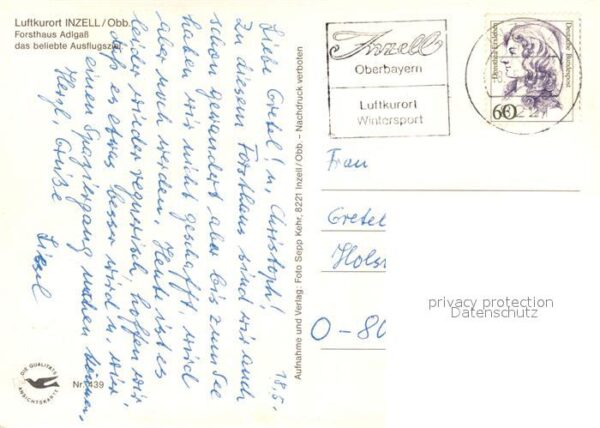 Luftkurort INZELL/Obb.
Forsthaus Adlgaß
das beliebte Ausflugsziel
18.5.
Liebe Gretel! u. Christoph!
Zu diesem Forsthaus sind wir auch
schon gewandert aber bis zum See
haben wir nicht geschafft, wird
aber noch werden. Heute ist es
leider wieder regnerisch, hoffen wir
daß es etwas besser wird u. wir
einen Spaziergang machen können.
Herzl. Grüße
Liesel
DIE QUALITÄTS
ANSICHTSKARTE
Nr. 439
Aufnahme und Verlag: Foto Sepp Kehr, 8221 Inzell/Obb. – Nachdruck verboten
Inzell
Oberbayern
Luftkurort
Wintersport
Dorothea Erxleben
Deutsche Bundespost
60
8221
Frau
Gretel
Hols
O-80
privacy protection
Datenschutz